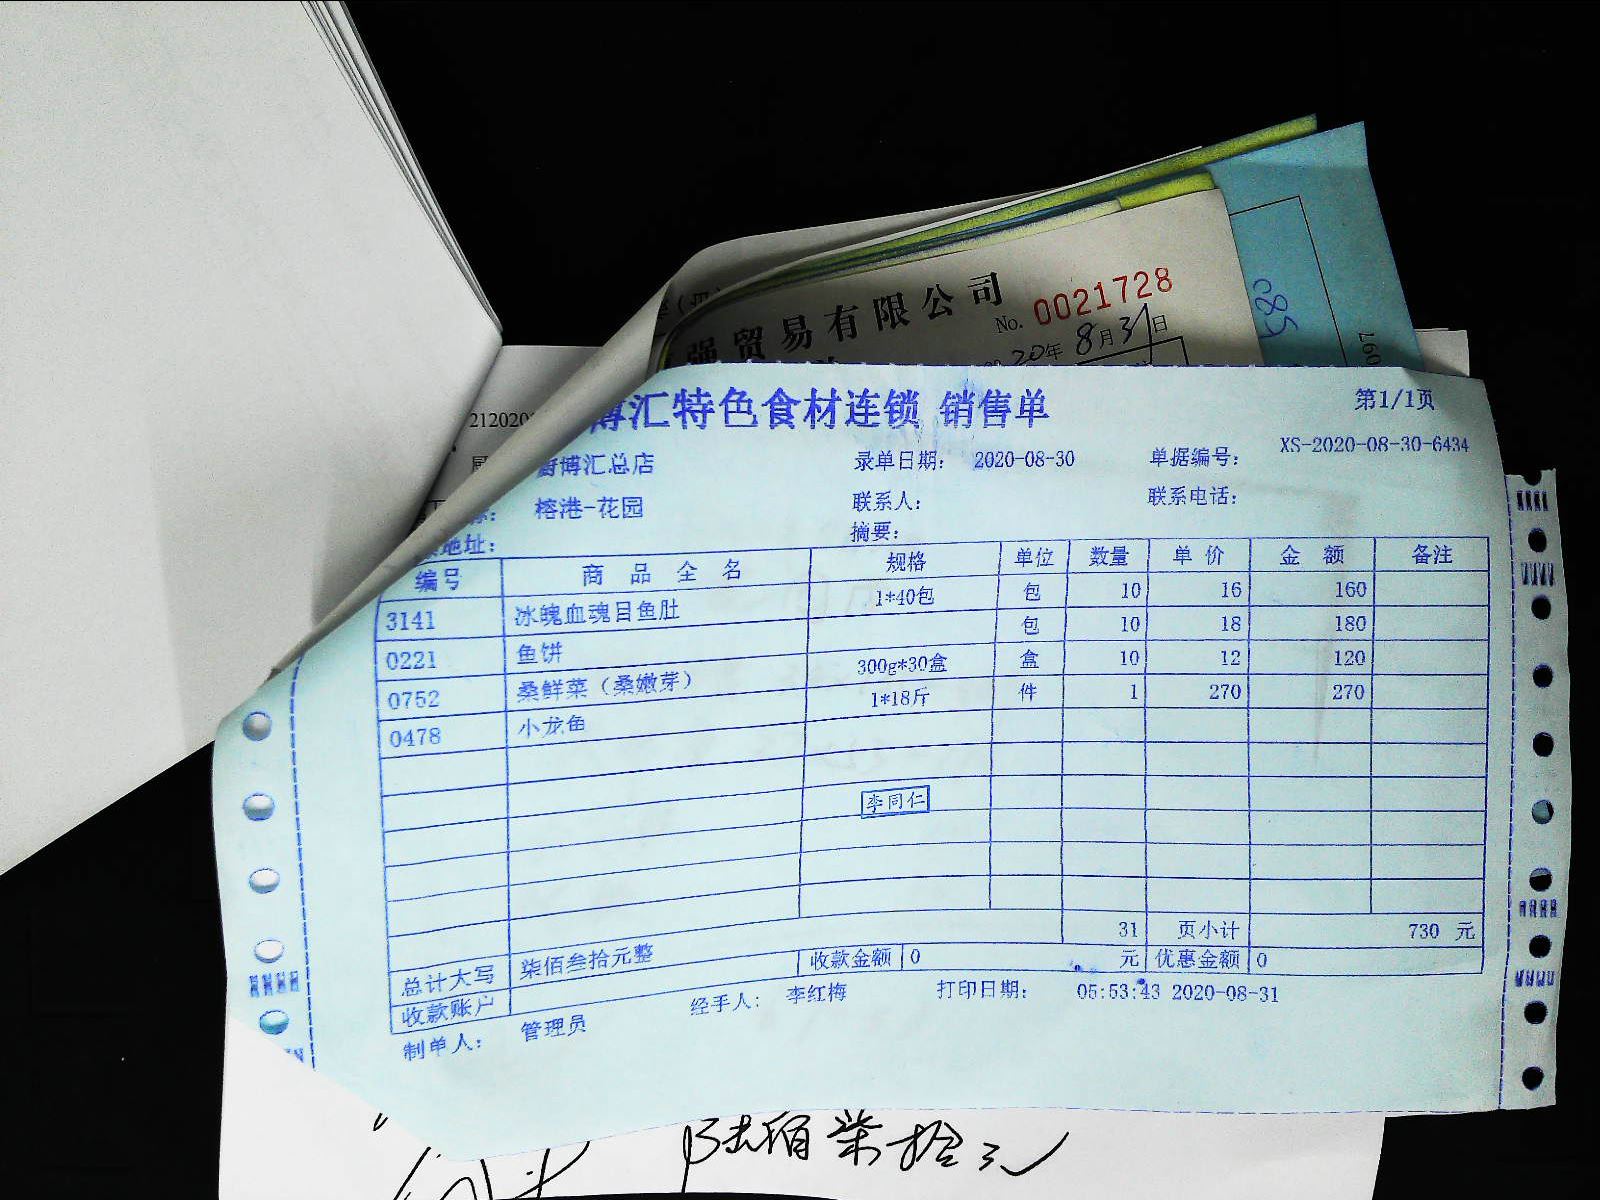 强贸易有限公司
No. 0021728
20年8月31日
085
097
212020
博汇特色食材连锁 销售单
第1/1页
厨博汇总店 录单日期： 2020-08-30 单据编号： XS-2020-08-30-6434
榕港-花园 联系人： 联系电话：
地址： 摘要：
编号 商品全名 规格 单位 数量 单价 金额 备注
3141 冰魄血魂目鱼肚 1*40包 包 10 16 160
0221 鱼饼 包 10 18 180
0752 桑鲜菜（桑嫩芽） 300g*30盒 盒 10 12 120
0478 小龙鱼 1*18斤 件 1 270 270
李同仁
31 页小计 730 元
总计大写 柒佰叁拾元整 收款金额 0 元 优惠金额 0
收款账户
制单人： 管理员 经手人： 李红梅 打印日期： 05:53:43 2020-08-31
陆佰柒拾元